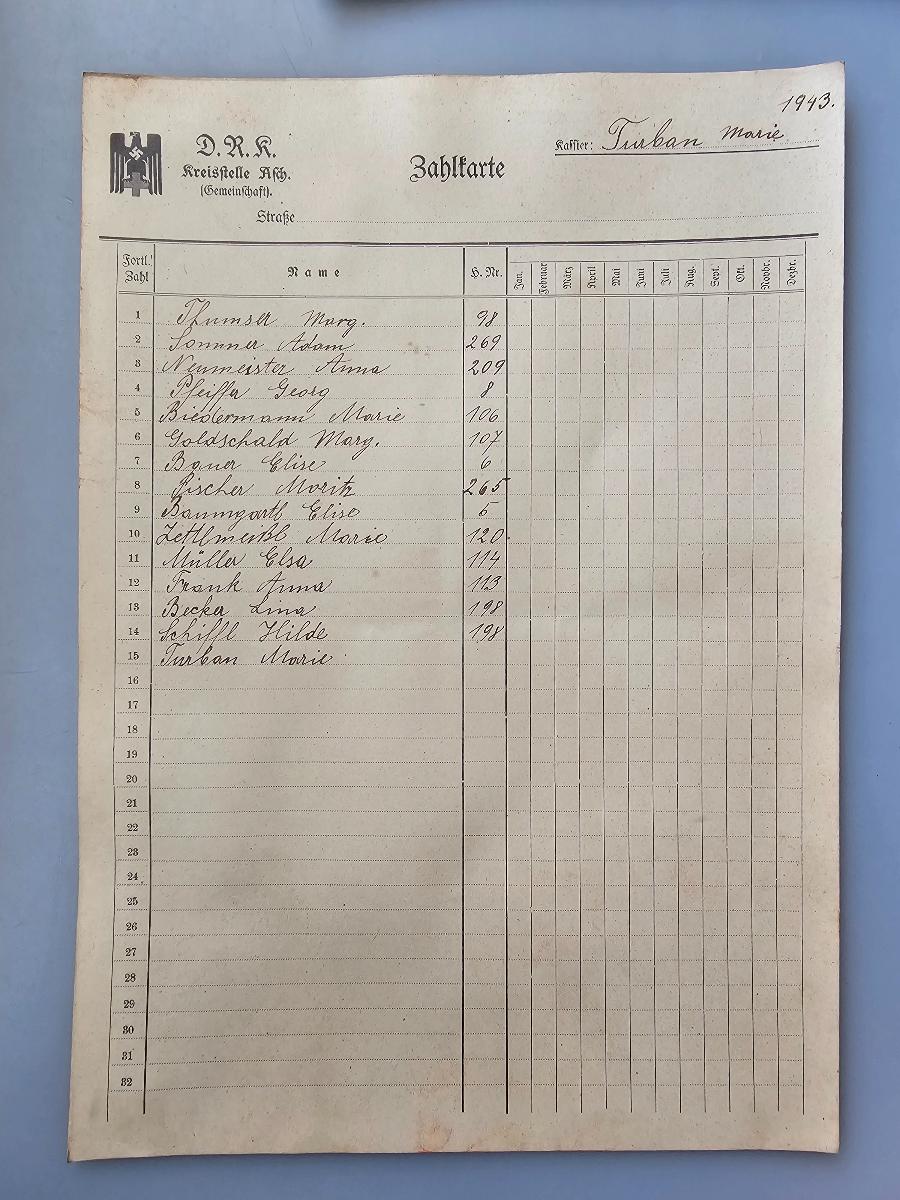 1943.
D.R.K.
Kreisstelle Asch.
(Gemeinschaft).
Zahlkarte
Kassier: Turban Marie
Straße
Fortl. Zahl Name H. Nr. Jan. Februar März April Mai Juni Juli Aug. Sept. Okt. Novbr. Dezbr.
1 Thumser Marg. 98
2 Sommer Adam 269
3 Neumeister Anna 209
4 Pfeiffer Georg 8
5 Biedermann Marie 106
6 Goldschald Marg. 107
7 Bauer Elise 6
8 Fischer Moritz 265
9 Baumgartl Elise 5
10 Zettlmeißl Marie 120
11 Müller Elsa 114
12 Frank Anna 113
13 Becka Lina 198
14 Schiffl Hilde 198
15 Turban Marie
16
17
18
19
20
21
22
23
24
25
26
27
28
29
30
31
32